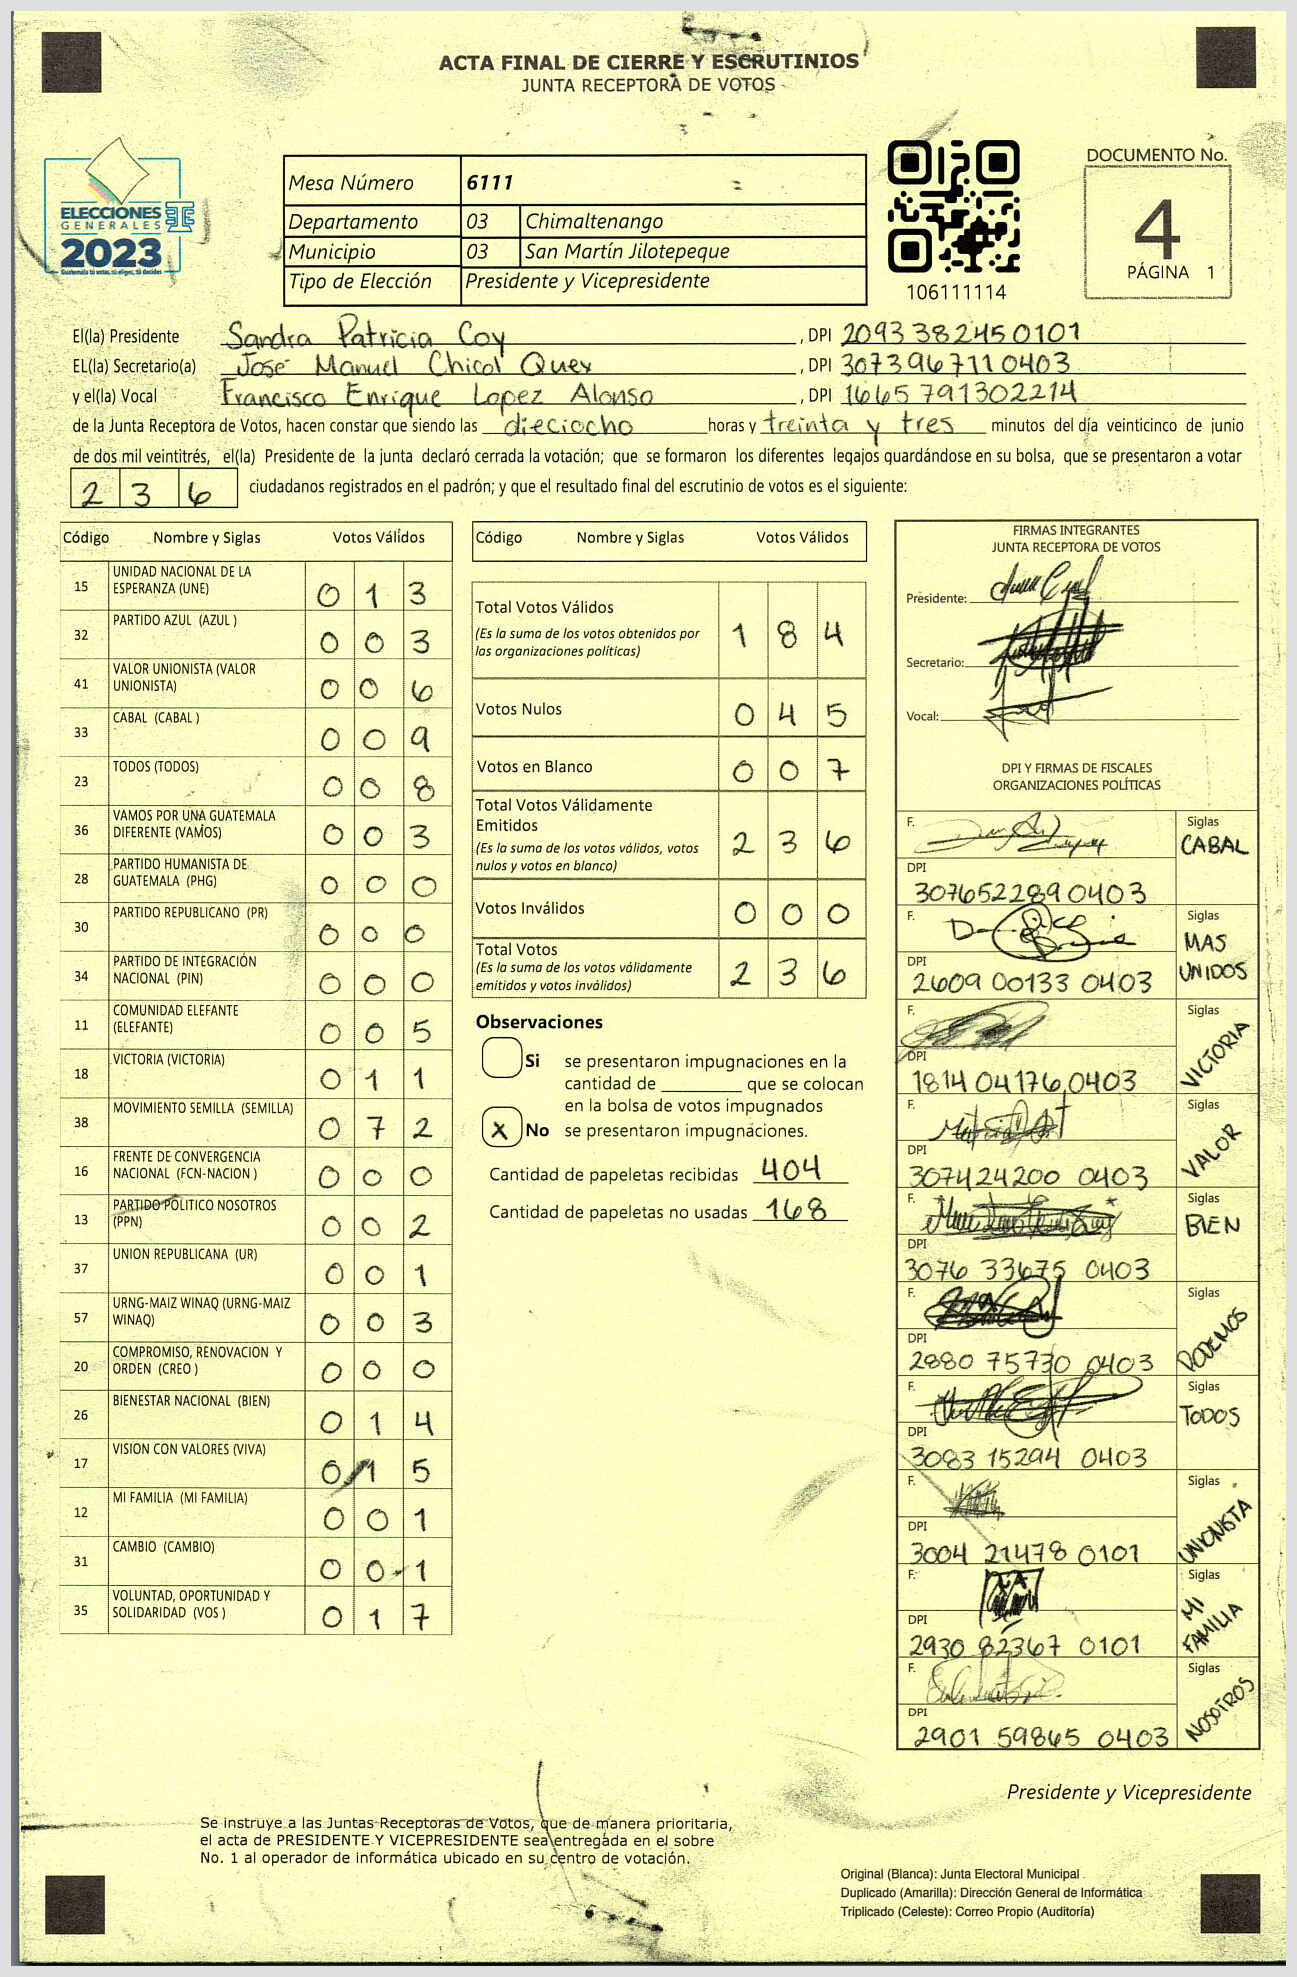 ACTA FINAL DE CIERRE Y ESCRUTINIOS
JUNTA RECEPTORA DE VOTOS
ELECCIONES
GENERALES
2023
Guatemala tú votas, tú eliges, tú decides
Mesa Número 6111
Departamento 03 Chimaltenango
Municipio 03 San Martín Jilotepeque
Tipo de Elección Presidente y Vicepresidente
106111114
DOCUMENTO No.
4
PÁGINA 1
El(la) Presidente Sandra Patricia Coy, DPI 2093382450101
EL(la) Secretario(a) José Manuel Chicol Quex, DPI 3073967110403
y el(la) Vocal Francisco Enrique Lopez Alonso, DPI 1665791302214
de la Junta Receptora de Votos, hacen constar que siendo las dieciocho horas y treinta y tres minutos del día veinticinco de junio
de dos mil veintitrés, el(la) Presidente de la junta declaró cerrada la votación; que se formaron los diferentes legajos guardándose en su bolsa, que se presentaron a votar
236 ciudadanos registrados en el padrón; y que el resultado final del escrutinio de votos es el siguiente:
Código Nombre y Siglas Votos Válidos
15 UNIDAD NACIONAL DE LA ESPERANZA (UNE) 0 1 3
32 PARTIDO AZUL (AZUL ) 0 0 3
41 VALOR UNIONISTA (VALOR UNIONISTA) 0 0 6
33 CABAL (CABAL ) 0 0 9
23 TODOS (TODOS) 0 0 8
36 VAMOS POR UNA GUATEMALA DIFERENTE (VAMOS) 0 0 3
28 PARTIDO HUMANISTA DE GUATEMALA (PHG) 0 0 0
30 PARTIDO REPUBLICANO (PR) 0 0 0
34 PARTIDO DE INTEGRACIÓN NACIONAL (PIN) 0 0 0
11 COMUNIDAD ELEFANTE (ELEFANTE) 0 0 5
18 VICTORIA (VICTORIA) 0 1 1
38 MOVIMIENTO SEMILLA (SEMILLA) 0 7 2
16 FRENTE DE CONVERGENCIA NACIONAL (FCN-NACION ) 0 0 0
13 PARTIDO POLITICO NOSOTROS (PPN) 0 0 2
37 UNION REPUBLICANA (UR) 0 0 1
57 URNG-MAIZ WINAQ (URNG-MAIZ WINAQ) 0 0 3
20 COMPROMISO, RENOVACION Y ORDEN (CREO ) 0 0 0
26 BIENESTAR NACIONAL (BIEN) 0 1 4
17 VISION CON VALORES (VIVA) 0 1 5
12 MI FAMILIA (MI FAMILIA) 0 0 1
31 CAMBIO (CAMBIO) 0 0 1
35 VOLUNTAD, OPORTUNIDAD Y SOLIDARIDAD (VOS ) 0 1 7
Código Nombre y Siglas Votos Válidos
Total Votos Válidos 1 8 4
(Es la suma de los votos obtenidos por
las organizaciones políticas)
Votos Nulos 0 4 5
Votos en Blanco 0 0 7
Total Votos Válidamente
Emitidos 2 3 6
(Es la suma de los votos válidos, votos
nulos y votos en blanco)
Votos Inválidos 0 0 0
Total Votos 2 3 6
(Es la suma de los votos válidamente
emitidos y votos inválidos)
Observaciones
Si se presentaron impugnaciones en la
cantidad de ________ que se colocan
en la bolsa de votos impugnados
X No se presentaron impugnaciones.
Cantidad de papeletas recibidas 404
Cantidad de papeletas no usadas 168
FIRMAS INTEGRANTES
JUNTA RECEPTORA DE VOTOS
Presidente:
Secretario:
Vocal:
DPI Y FIRMAS DE FISCALES
ORGANIZACIONES POLÍTICAS
F. Siglas CABAL
DPI 3076522890403
F. Siglas MAS UNIDOS
DPI 2609 00133 0403
F. Siglas VICTORIA
DPI 1814 04176 0403
F. Siglas VALOR
DPI 307424200 0403
F. Siglas BIEN
DPI 3076 33675 0403
F. Siglas PODEMOS
DPI 2880 75730 0403
F. Siglas TODOS
DPI 3083 15294 0403
F. Siglas UNIONISTA
DPI 3004 21478 0101
F. Siglas MI FAMILIA
DPI 2930 82367 0101
F. Siglas NOSOTROS
DPI 2901 59865 0403
Presidente y Vicepresidente
Se instruye a las Juntas Receptoras de Votos, que de manera prioritaria,
el acta de PRESIDENTE Y VICEPRESIDENTE sea entregada en el sobre
No. 1 al operador de informática ubicado en su centro de votación.
Original (Blanca): Junta Electoral Municipal
Duplicado (Amarilla): Dirección General de Informática
Triplicado (Celeste): Correo Propio (Auditoría)